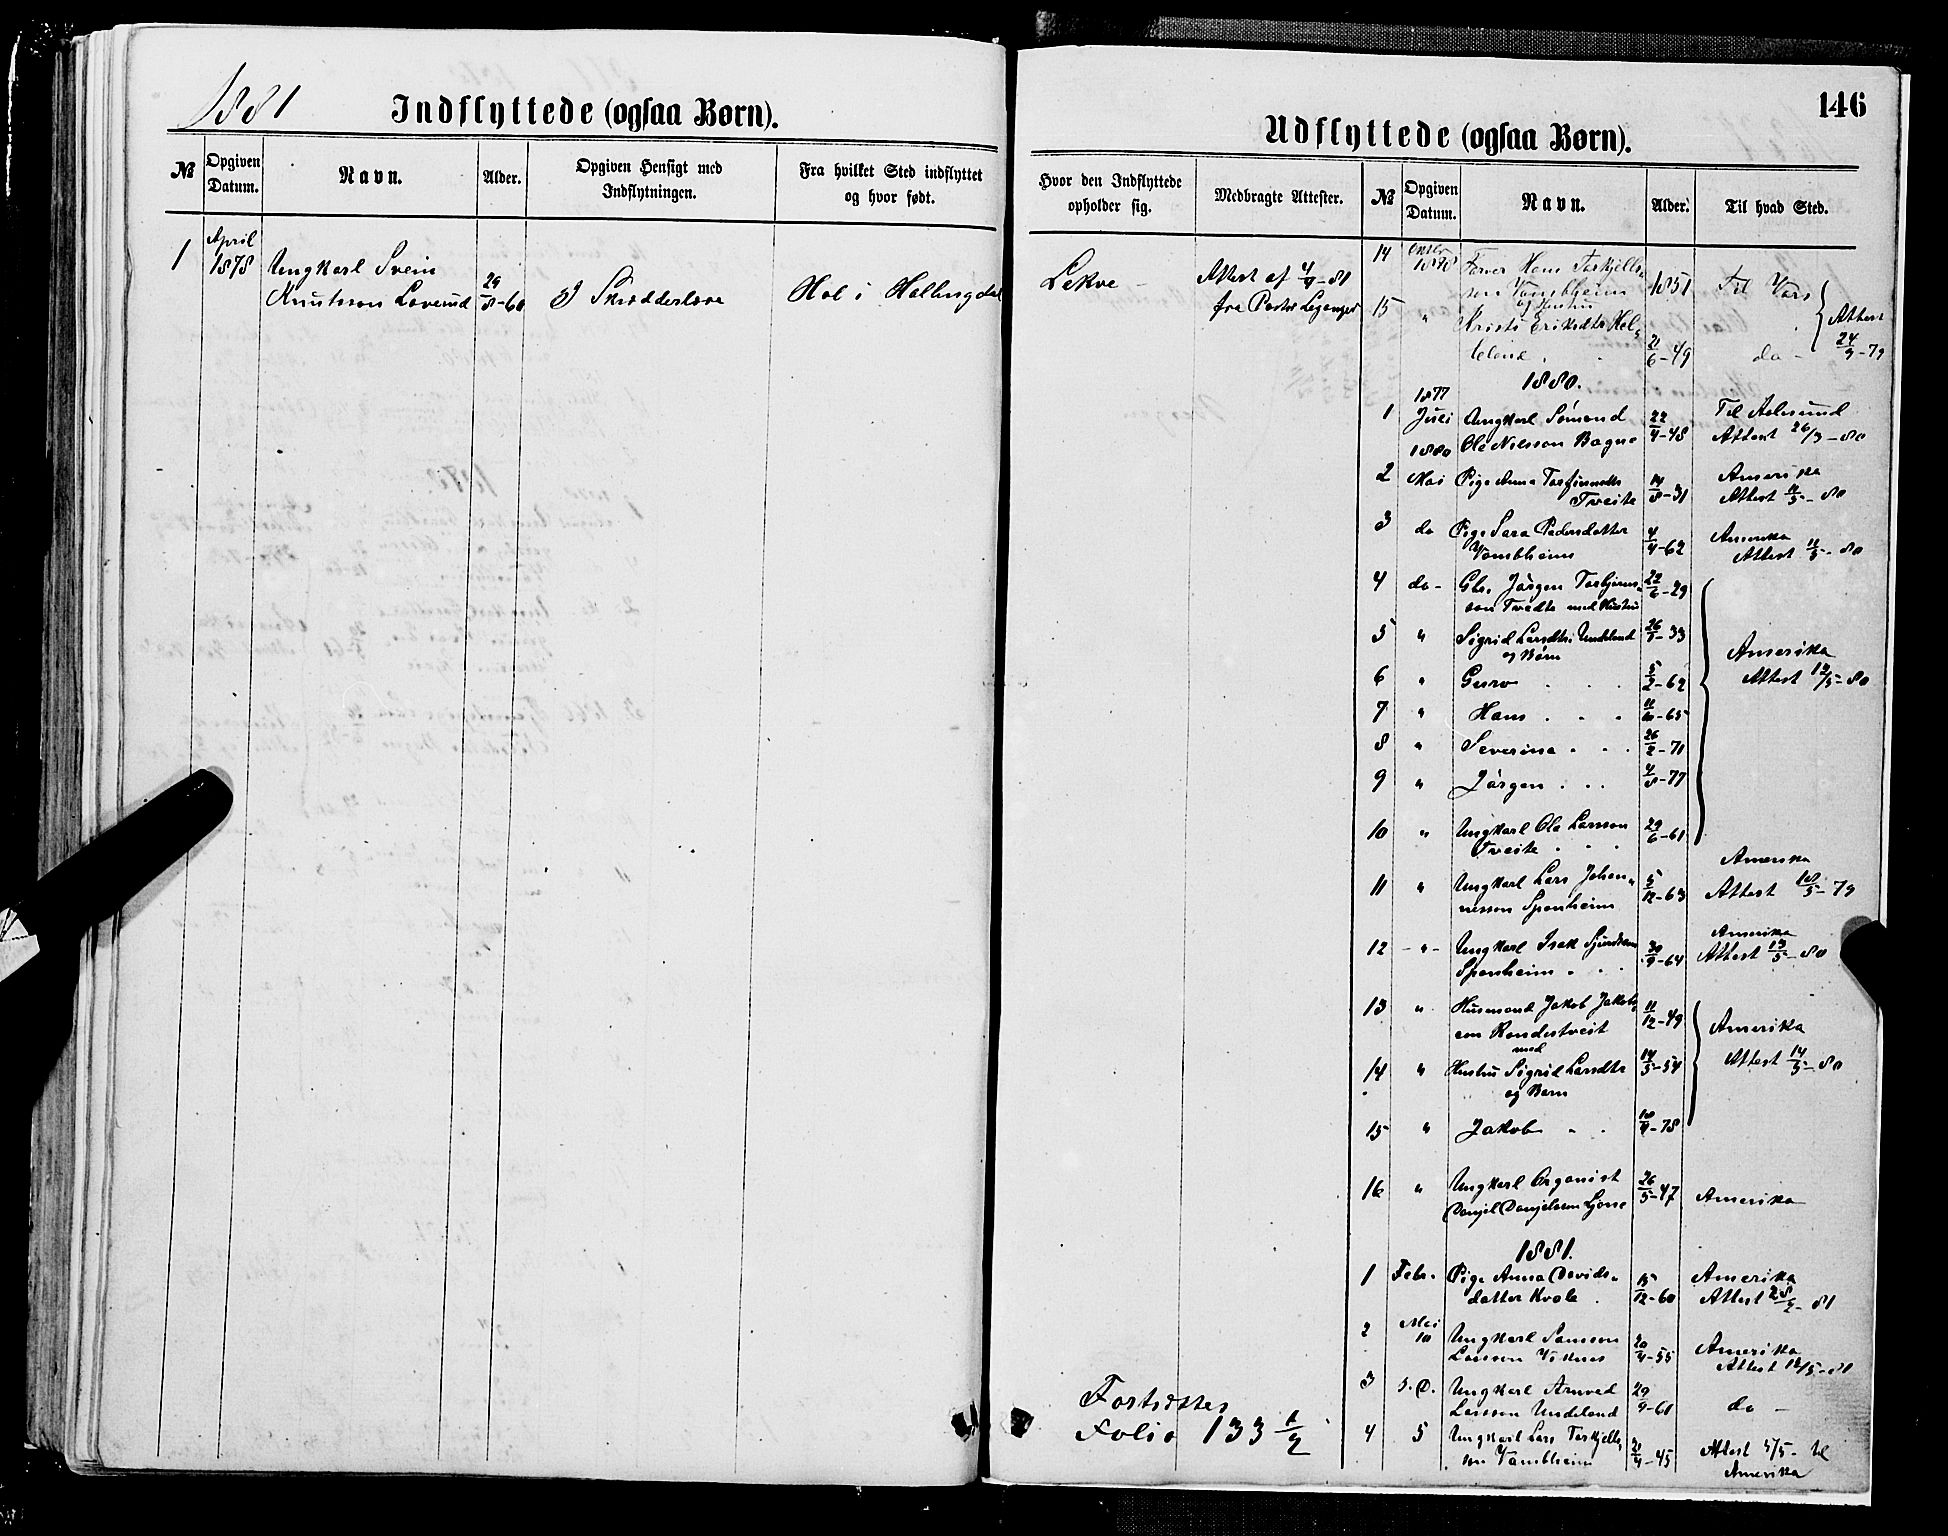 1881
Indflyttede (ogsaa Børn).
№
Opgiven Datum.
Navn.
Alder.
Opgiven Hensigt med Indflytningen.
Fra hvilket Sted indflyttet og hvor født.
1 April 1878 Ungkarl Svein
Knutsson 29/8-60 I Skrædderlære Hol i Hallingdal
146
Udflyttede (ogsaa Børn).
Hvor den Indflyttede opholder sig.
Medbragte Attester.
№
Opgiven Datum.
Navn.
Alder.
Til hvad Sted.
Lekve Attest af
fra Pastor
14 Hans Torkjells-
son Vambheim 1851 Til Vors
og Hustru
15 " Kristi Eriksdtr Hel-
leland 21/6-49 do - Attest 24/9-79
1880.
1877
1 Juli Ungkarl Sömand 22/4-48 Til Aalesund
Ole Nilsson Bagne Attest 26/3-80
1880
2 Mai Pige Anna Torfinnsdtr 14/8-31 Amerika
Tveite Attest 11/5-80
3 do Pige Sara Pedersdatter 4/4-62 Amerika
Vambheim Attest 11/5-80
4 do - Gbr. Jörgen Torbjørns- 22/6-29
son Tvedte med Hustru
5 " Sigrid Larsdtr Undeland 26/5-33
og Børn Amerika
6 " Guro 5/2-62 Attest 12/5-80
7 " Hans 11/10-65
8 " Severina 26/2-71
9 " Jörgen 4/8-77
10 " Ungkarl Ole Larsson 29/6-61
Tveite
11 " Ungkarl Lars Johan- 5/12-63 Amerika
nesson Sponheim Attest 10/5-79
12 - " - Ungkarl Isak Sjurdsson 30/9-64 Amerika
Sponheim Attest 13/5-80
13 " Husmand Jakob Jakobs- 11/12-49 Amerika
son Rondestveit
med Attest 14/5-80
14 " Hustru Sigrid Larsdtr 14/5-54
og Barn
15 " Jakob 10/4-78
16 " Ungkarl Organist 26/5-47 Amerika
Danjel Danjelsson
1881.
1 Febr. Pige Anna Davids- 15/12-60 Amerika
datter Kvale Attest 28/2-81
2 Mai 10 Ungkarl Samson 20/4-55 Amerika
Larsson Viknes Attest 10/5-81
3 s. D. Ungkarl Arnved 29/9-61 do -
Larsson Undeland
4 5 Ungkarl Lars Torkjells- 21/4-45 Attest 5/5- til
son Vambheim Amerika
Fortsættes
Folio 133 1/2